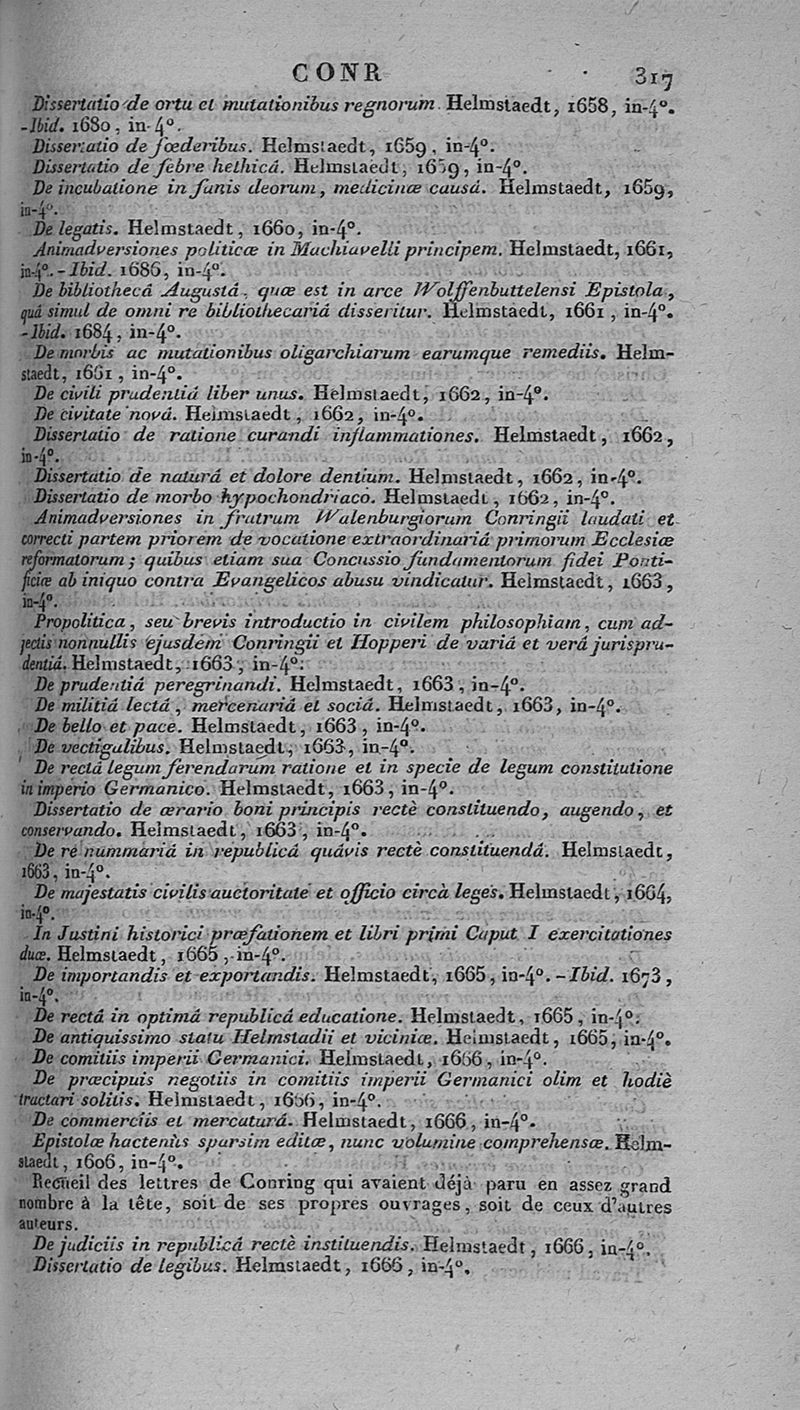 CONR 317
Dissertatio de ortu et mutationibus regnorum. Helmstaedt, 1658, in-4°.
-Ibid. 1680, in-4°.
Dissertatio de fœderibus. Helmstaedt, 1659, in-4°.
Dissertatio de febre hethicâ. Helmstaedt, 1659, in-4°.
De incubatione in fanis deorum, medicinæ causâ. Helmstaedt, 1659,
in-4°.
De legatis. Helmstaedt, 1660, in-4°.
Animadversiones politicæ in Machiavelli principem. Helmstaedt, 1661,
in-4°. - Ibid. 1686, in-4°.
De bibliothecâ Augustâ, quæ est in arce Wolffenbuttelensi Epistola,
quâ simul de omni re bibliothecariâ disseritur. Helmstaedt, 1661, in-4°.
-Ibid. 1684, in-4°.
De morbis ac mutationibus oligarchiarum earumque remediis. Helm-
staedt, 1661, in-4°.
De civili prudentiâ liber unus. Helmstaedt, 1662, in-4°.
De civitate novâ. Helmstaedt, 1662, in-4°.
Dissertatio de ratione curandi inflammationes. Helmstaedt, 1662,
in-4°.
Dissertatio de naturâ et dolore dentium. Helmstaedt, 1662, in-4°.
Dissertatio de morbo hypochondriaco. Helmstaedt, 1662, in-4°.
Animadversiones in fratrum Walenburgiorum Conringii laudati et
correcti partem priorem de vocatione extraordinariâ primorum Ecclesiæ
reformatorum; quibus etiam sua Concussio fundamentorum fidei Ponti-
ficiæ ab iniquo contra Evangelicos abusu vindicatur. Helmstaedt, 1663,
in-4°.
Propolitica, seu brevis introductio in civilem philosophiam, cum ad-
jectis nonnullis ejusdem Conringii et Hopperi de variâ et verâ jurispru-
dentiâ. Helmstaedt, 1663, in-4°.
De prudentiâ peregrinandi. Helmstaedt, 1663, in-4°.
De militiâ lectâ, mercenariâ et sociâ. Helmstaedt, 1663, in-4°.
De bello et pace. Helmstaedt, 1663, in-4°.
De vectigalibus. Helmstaedt, 1663, in-4°.
De rectâ legum ferendarum ratione et in specie de legum constitutione
in imperio Germanico. Helmstaedt, 1663, in-4°.
Dissertatio de ærario boni principis rectè constituendo, augendo, et
conservando. Helmstaedt, 1663, in-4°.
De re nummariâ in republicâ quâvis rectè constituendâ. Helmstaedt,
1663, in-4°.
De majestatis civilis auctoritate et officio circà leges. Helmstaedt, 1664,
in-4°.
In Justini historici præfationem et libri primi Caput I exercitationes
duæ. Helmstaedt, 1665, in-4°.
De importandis et exportandis. Helmstaedt, 1665, in-4°. - Ibid. 1673,
in-4°.
De rectâ in optimâ republicâ educatione. Helmstaedt, 1665, in-4°.
De antiquissimo statu Helmstadii et viciniæ. Helmstaedt, 1665, in-4°.
De comitiis imperii Germanici. Helmstaedt, 1666, in-4°.
De præcipuis negotiis in comitiis imperii Germanici olim et hodiè
tractari solitis. Helmstaedt, 1656, in-4°.
De commerciis et mercaturâ. Helmstaedt, 1666, in-4°.
Epistolæ hactenùs sparsim editæ, nunc volumine comprehensæ. Helm-
staedt, 1606, in-4°.
Recueil des lettres de Conring qui avaient déjà paru en assez grand
nombre à la tête, soit de ses propres ouvrages, soit de ceux d'autres
auteurs.
De judiciis in republicâ rectè instituendis. Helmstaedt, 1666, in-4°.
Dissertatio de legibus. Helmstaedt, 1666, in-4°.